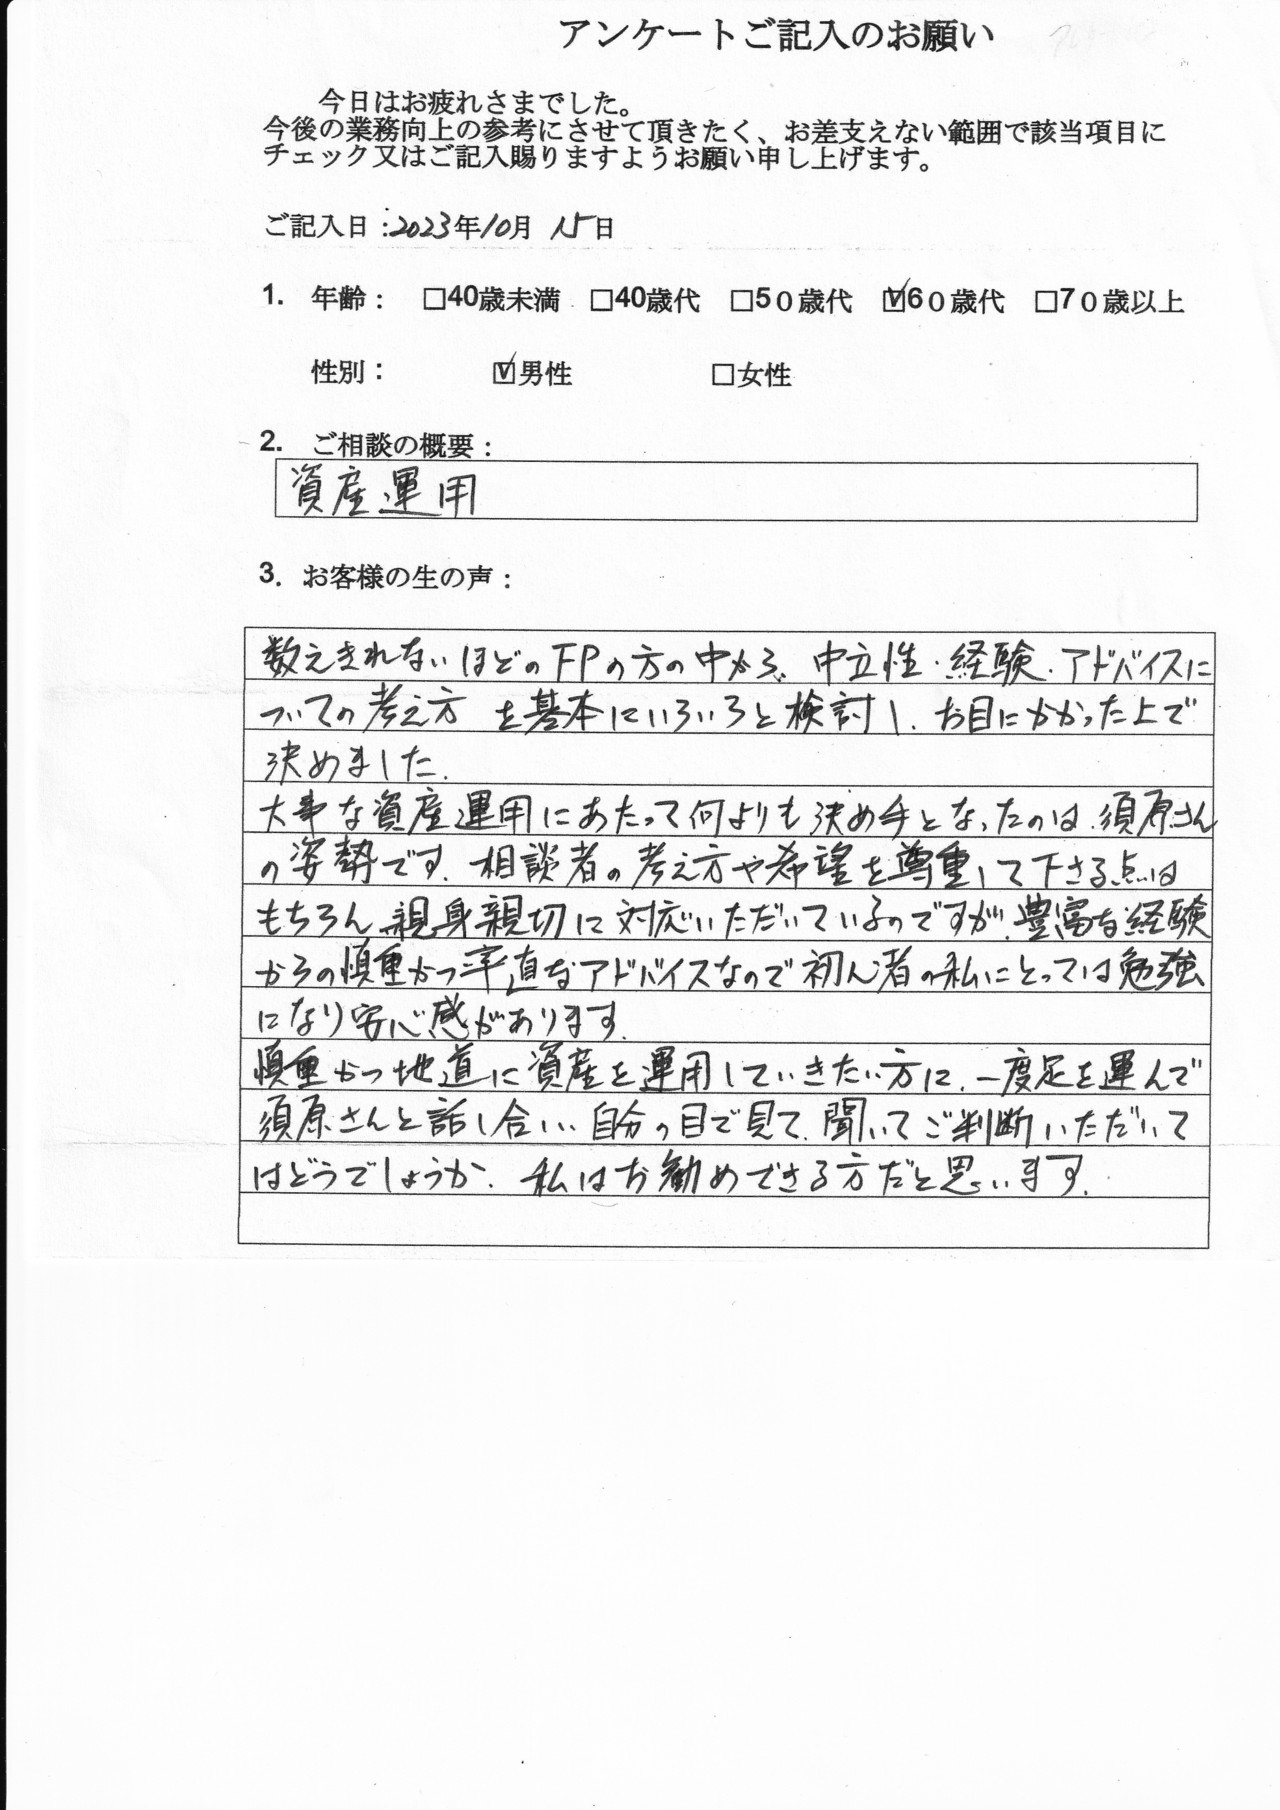 アンケートご記入のお願い
今日はお疲れさまでした。
今後の業務向上の参考にさせて頂きたく、お差支えない範囲で該当項目に
チェック又はご記入賜りますようお願い申し上げます。
ご記入日：2023年10月 15日
1. 年齢： □40歳未満 □40歳代 □50歳代 ☑60歳代 □70歳以上
性別： ☑男性 □女性
2. ご相談の概要：
資産運用
3. お客様の生の声：
数えきれないほどのFPの方の中から、中立性・経験・アドバイスに
ついての考え方 を基本にいろいろと検討し、お目にかかった上で
決めました。
大事な資産運用にあたって何よりも決め手となったのは、須原さん
の姿勢です。相談者の考え方や希望を尊重して下さる点は
もちろん、親身親切に対応いただいているのですが、豊富な経験
からの慎重かつ率直なアドバイスなので初心者の私にとっては勉強
になり安心感があります。
慎重かつ地道に資産を運用していきたい方に、一度足を運んで
須原さんと話し合い、自分の目で見て、聞いてご判断いただいて
はどうでしょうか。私はお勧めできる方だと思います。